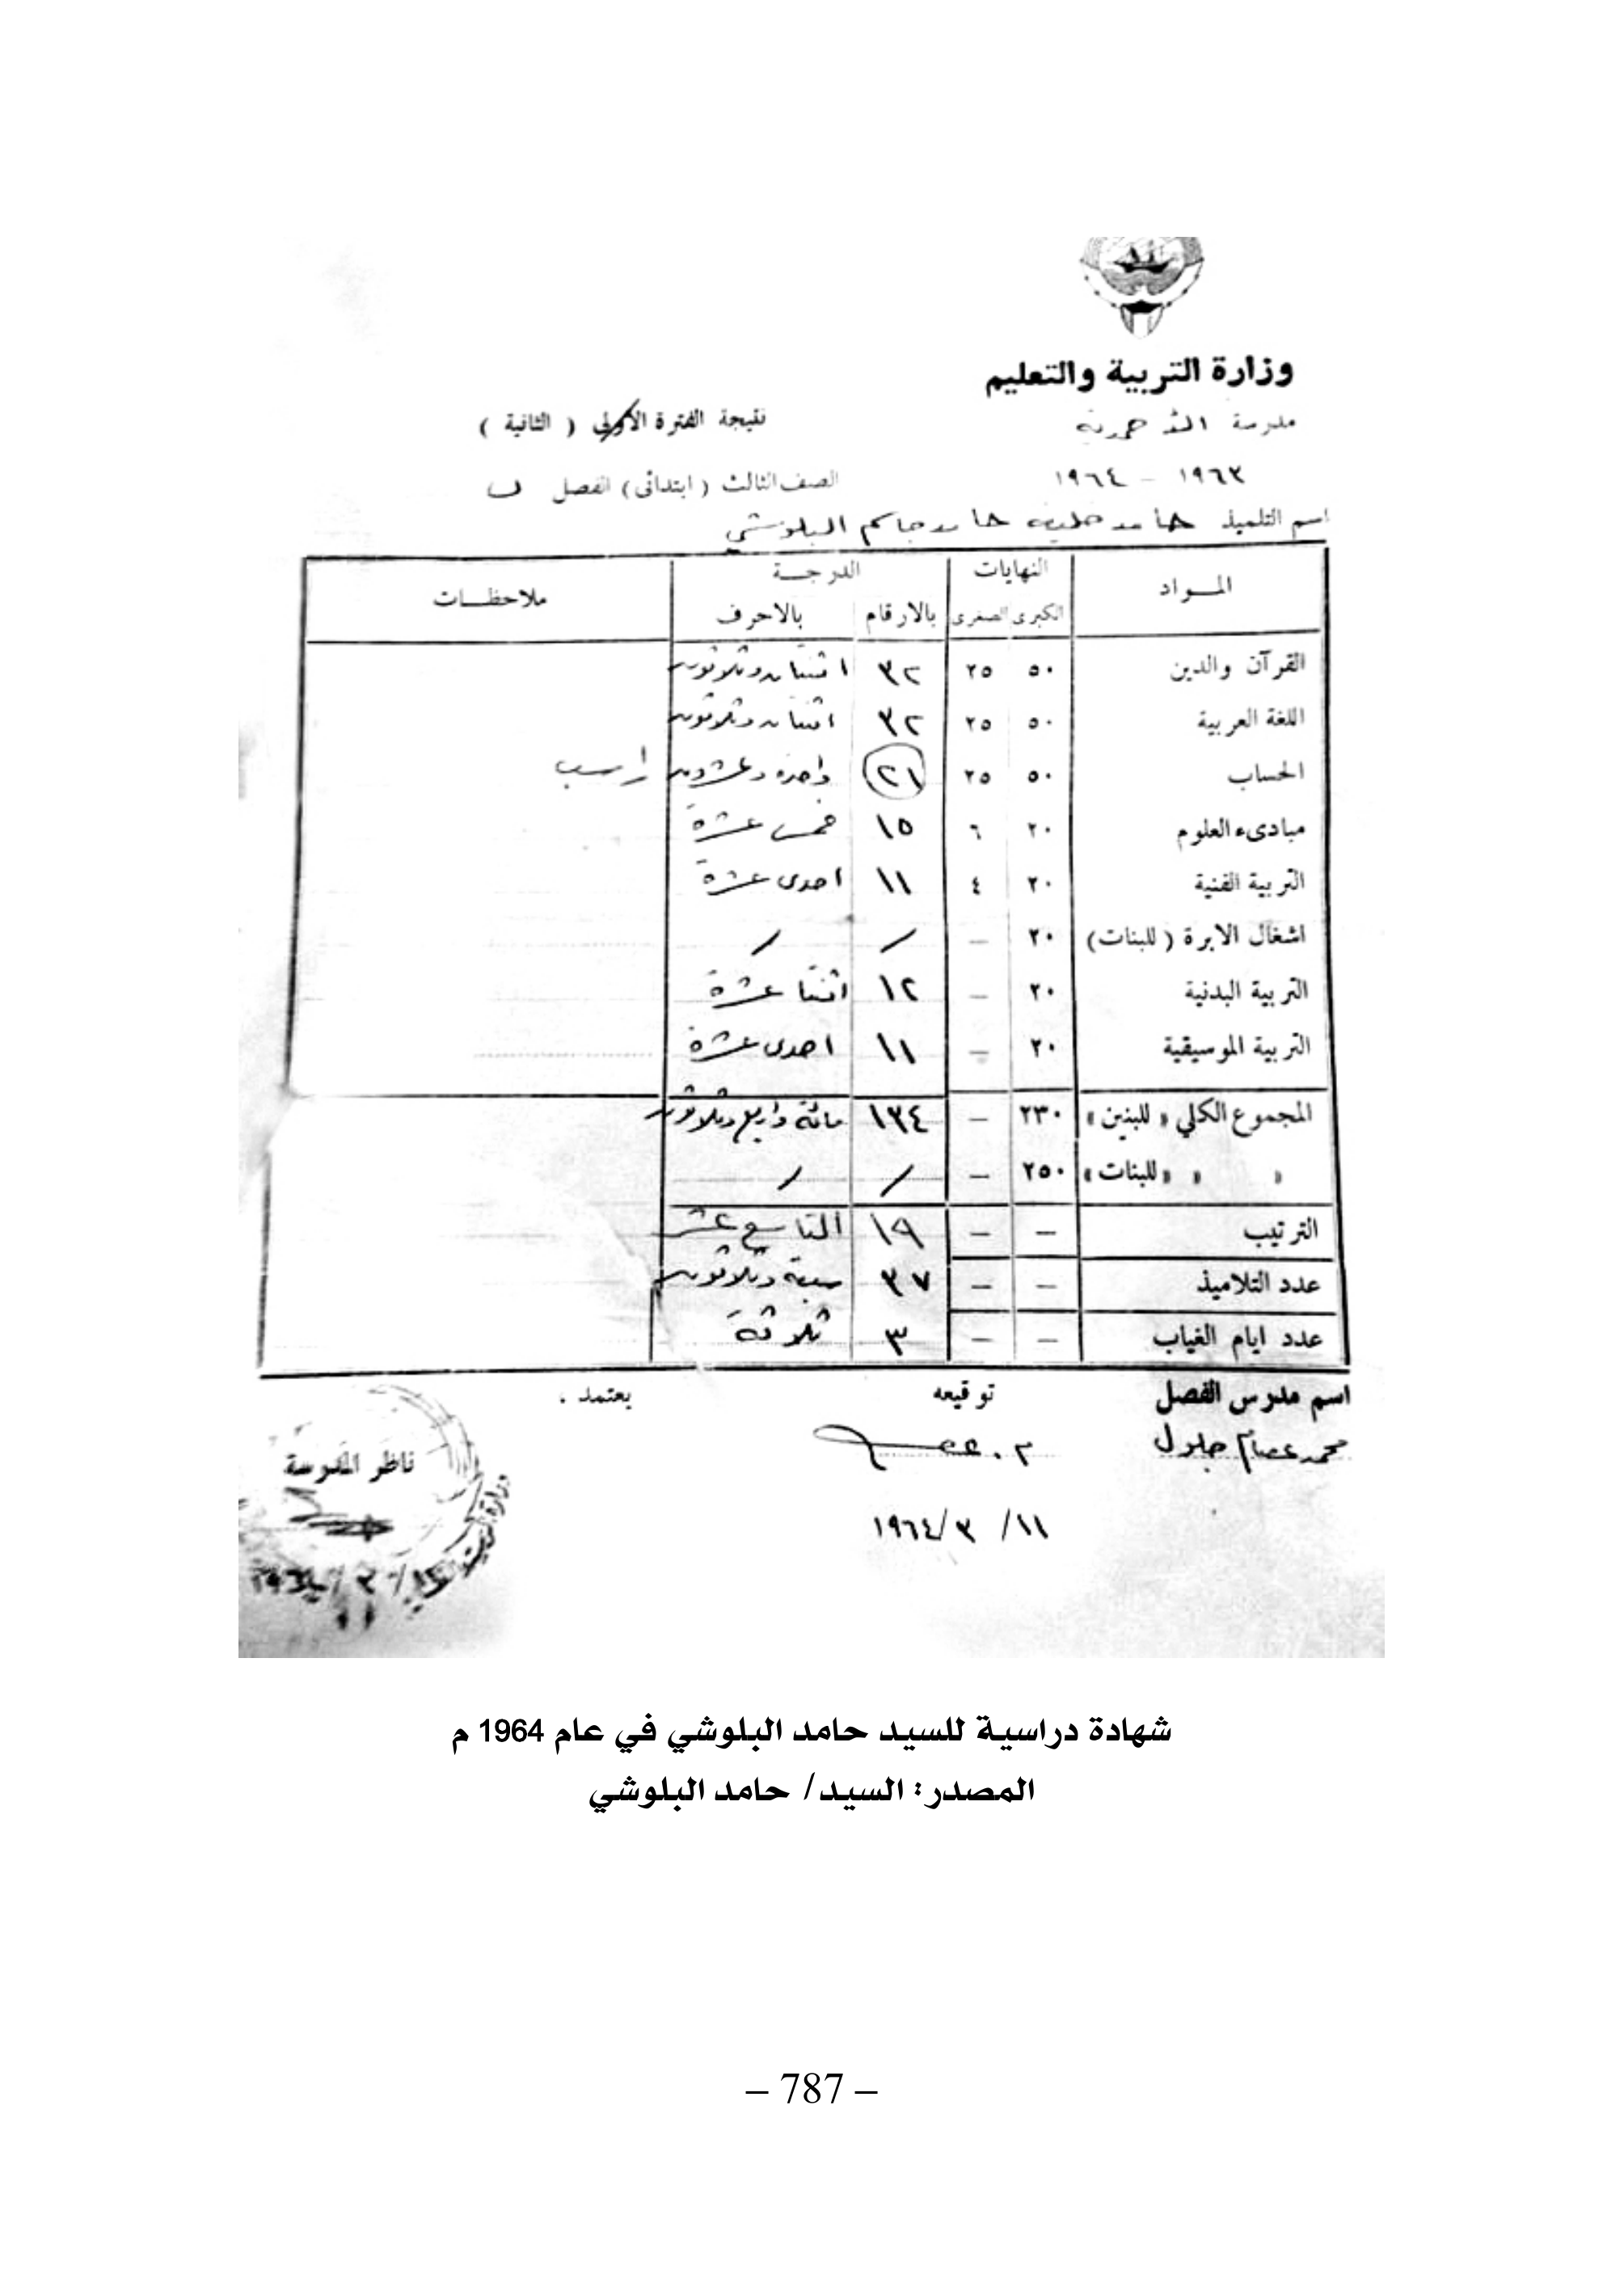 وزارة التربية والتعليم
مدرسة الأحمدية
نتيجة الفترة الاولى ( الثانية )
١٩٦٣ - ١٩٦٤
الصف الثالث ( ابتدائي ) الفصل ب
اسم التلميذ حامد خليفه حامد جاسم البلوشي
المـواد النهايات الدرجـة ملاحظـات
الكبرى الصغرى بالارقام بالاحرف
القرآن والدين ٥٠ ٢٥ ٣٢ اثنتان وثلاثون
اللغة العربية ٥٠ ٢٥ ٣٢ اثنتان وثلاثون
الحساب ٥٠ ٢٥ ٢١ واحدة وعشرون راسب
مبادىء العلوم ٢٠ ٦ ١٥ خمس عشرة
التربية الفنية ٢٠ ٤ ١١ احدى عشرة
اشغال الابرة ( للبنات ) ٢٠ — / /
التربية البدنية ٢٠ — ١٢ اثنتا عشرة
التربية الموسيقية ٢٠ — ١١ احدى عشرة
المجموع الكلي « للبنين » ٢٣٠ — ١٣٤ مائة واربع وثلاثون
« « « للبنات » ٢٥٠ — / /
الترتيب — — ١٩ التاسع عشر
عدد التلاميذ — — ٣٧ سبعة وثلاثون
عدد ايام الغياب — — ٣ ثلاثة
اسم مدرس الفصل توقيعه يعتمد .
محمد عصام جلول
ناظر المدرسة
١١/ ٣ /١٩٦٤
شهادة دراسية للسيد حامد البلوشي في عام 1964 م
المصدر: السيد/ حامد البلوشي
– 787 –